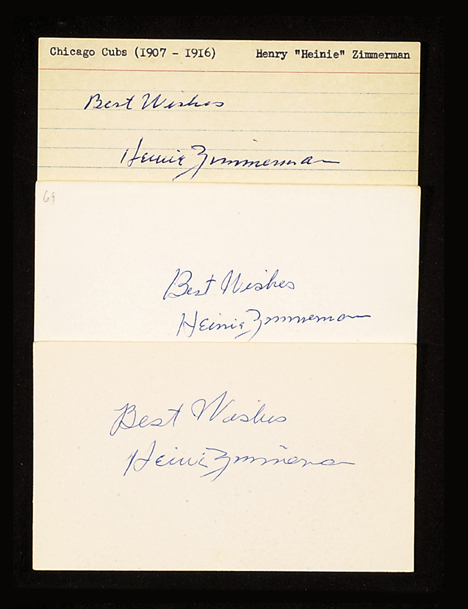 Chicago Cubs (1907 - 1916) Henry "Heinie" Zimmerman
Best Wishes
Heinie Zimmerman
69
Best Wishes
Heinie Zimmerman
Best Wishes
Heinie Zimmerman